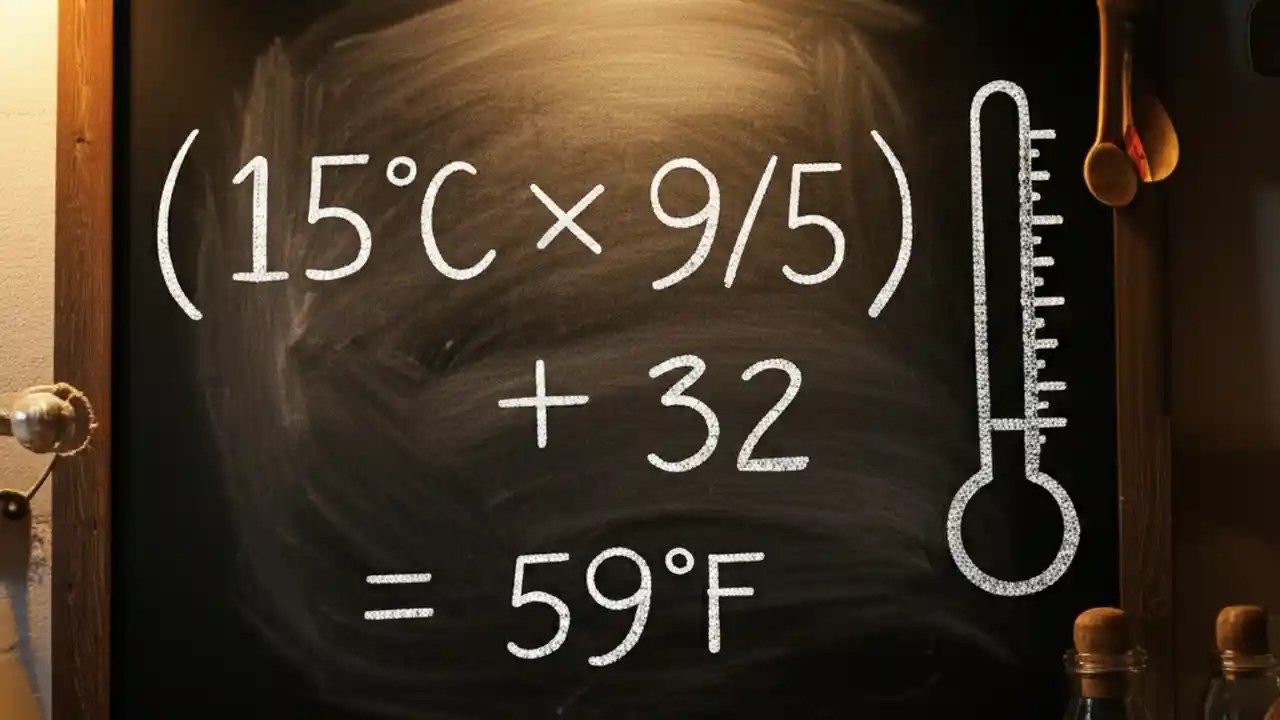 (15°C × 9/5)
+ 32
= 59°F